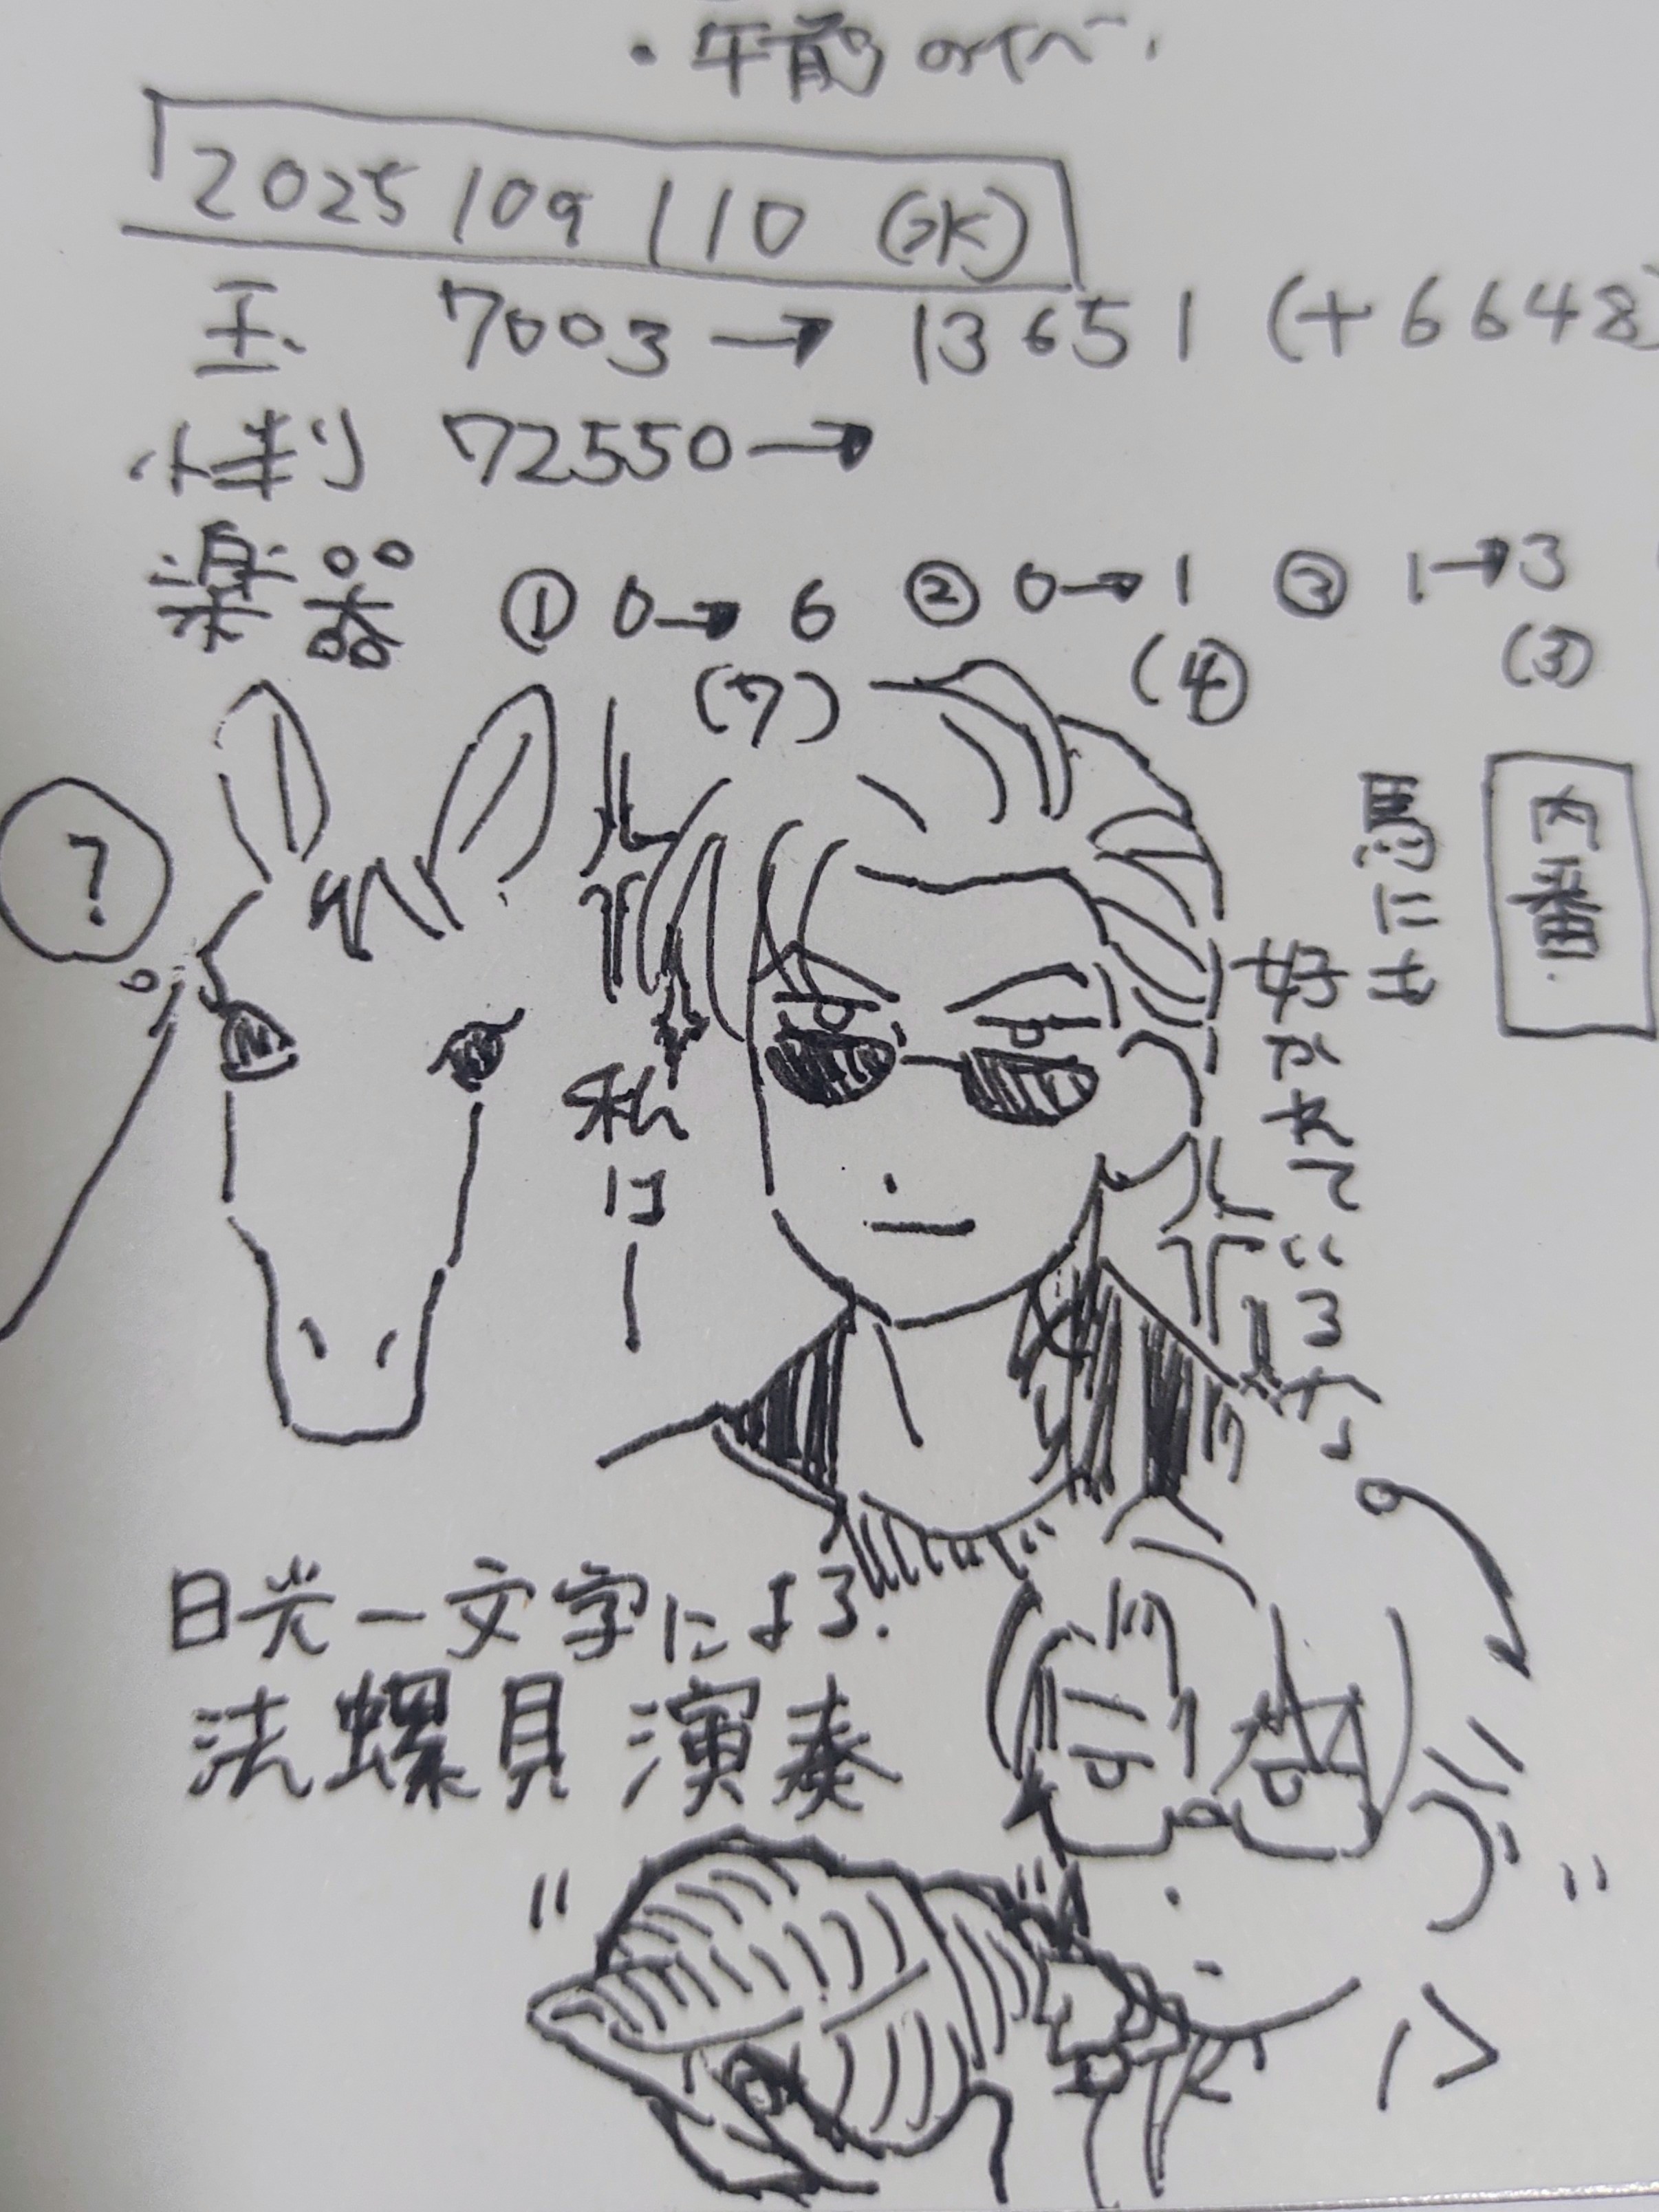 ・午前のイベ
2025/09/10 (水)
玉 7003 → 13651 (+6648)
小判 72550 →
楽器 ① 0 → 6 ② 0 → 1 ③ 1 → 3
(7) (4) (3)
内番
馬に
好かれている
私は
?
日光一文字による
法螺貝演奏